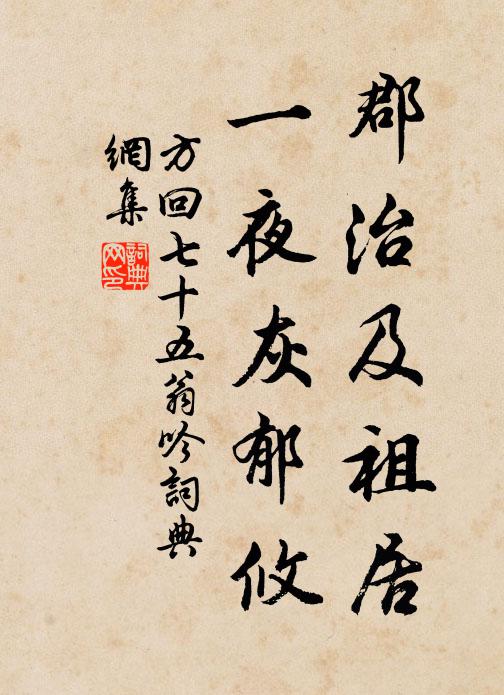 郡治及祖居
一夜灰郁攸
方回七十五翁吟詞典
網集
詞典網印